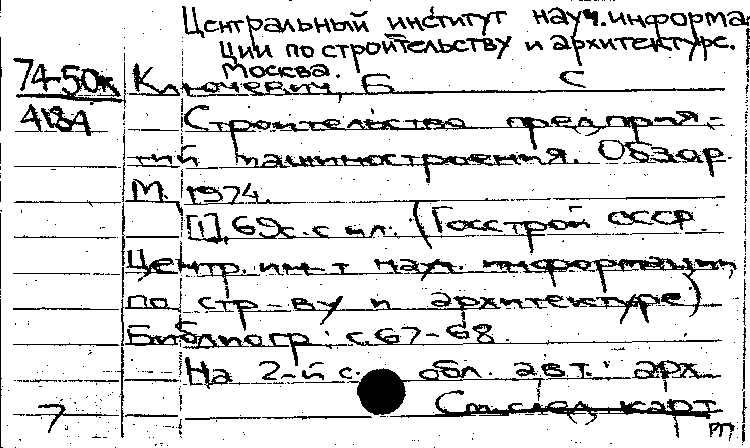 Центральный институт науч. информа
ции по строительству и архитектуре.
Москва.
74-50к Ключевич, Б С
4134 Строительство предприя-
тий машиностроения. Обзор
М., 1974.
[1], 69с. с ил. (Госстрой СССР
Центр. ин-т науч. информации
по стр-ву и архитектуре)
Библиогр: с. 67-68.
На 2-й с. обл. авт.: арх
См. след карт
7 РП